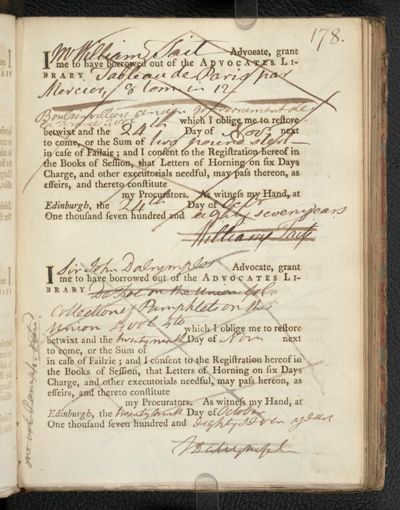 178.
I Mr William Tait Advocate, grant
me to have borrowed out of the ADVOCATES LI-
BRARY, Tableau de Paris par
Mercier, 8 tom in 12º
Boulainvilliers
which I oblige me to restore
betwixt and the 24th Day of Novr next
to come, or the Sum of two pounds sterl
in case of Failzie; and I consent to the Registration hereof in
the Books of Session, that Letters of Horning on six Days
Charge, and other executorials needful, may pass hereon, as
effeirs, and thereto constitute
my Procurators. As witness my Hand, at
Edinburgh, the 24th Day of Octr
One thousand seven hundred and eighty seven years
William Tait
I Sir John Dalrymple Advocate, grant
me to have borrowed out of the ADVOCATES LI-
BRARY De Foe on the Union
Collection of Pamphlets on the
Union 2 vols 4to which I oblige me to restore
betwixt and the twenty ninth Day of Novr next
to come, or the Sum of
in case of Failzie; and I consent to the Registration hereof in
the Books of Session, that Letters of Horning on six Days
Charge, and other executorials needful, may pass hereon, as
effeirs, and thereto constitute
my Procurators. As witness my Hand, at
Edinburgh, the twenty ninth Day of October
One thousand seven hundred and eighty seven years